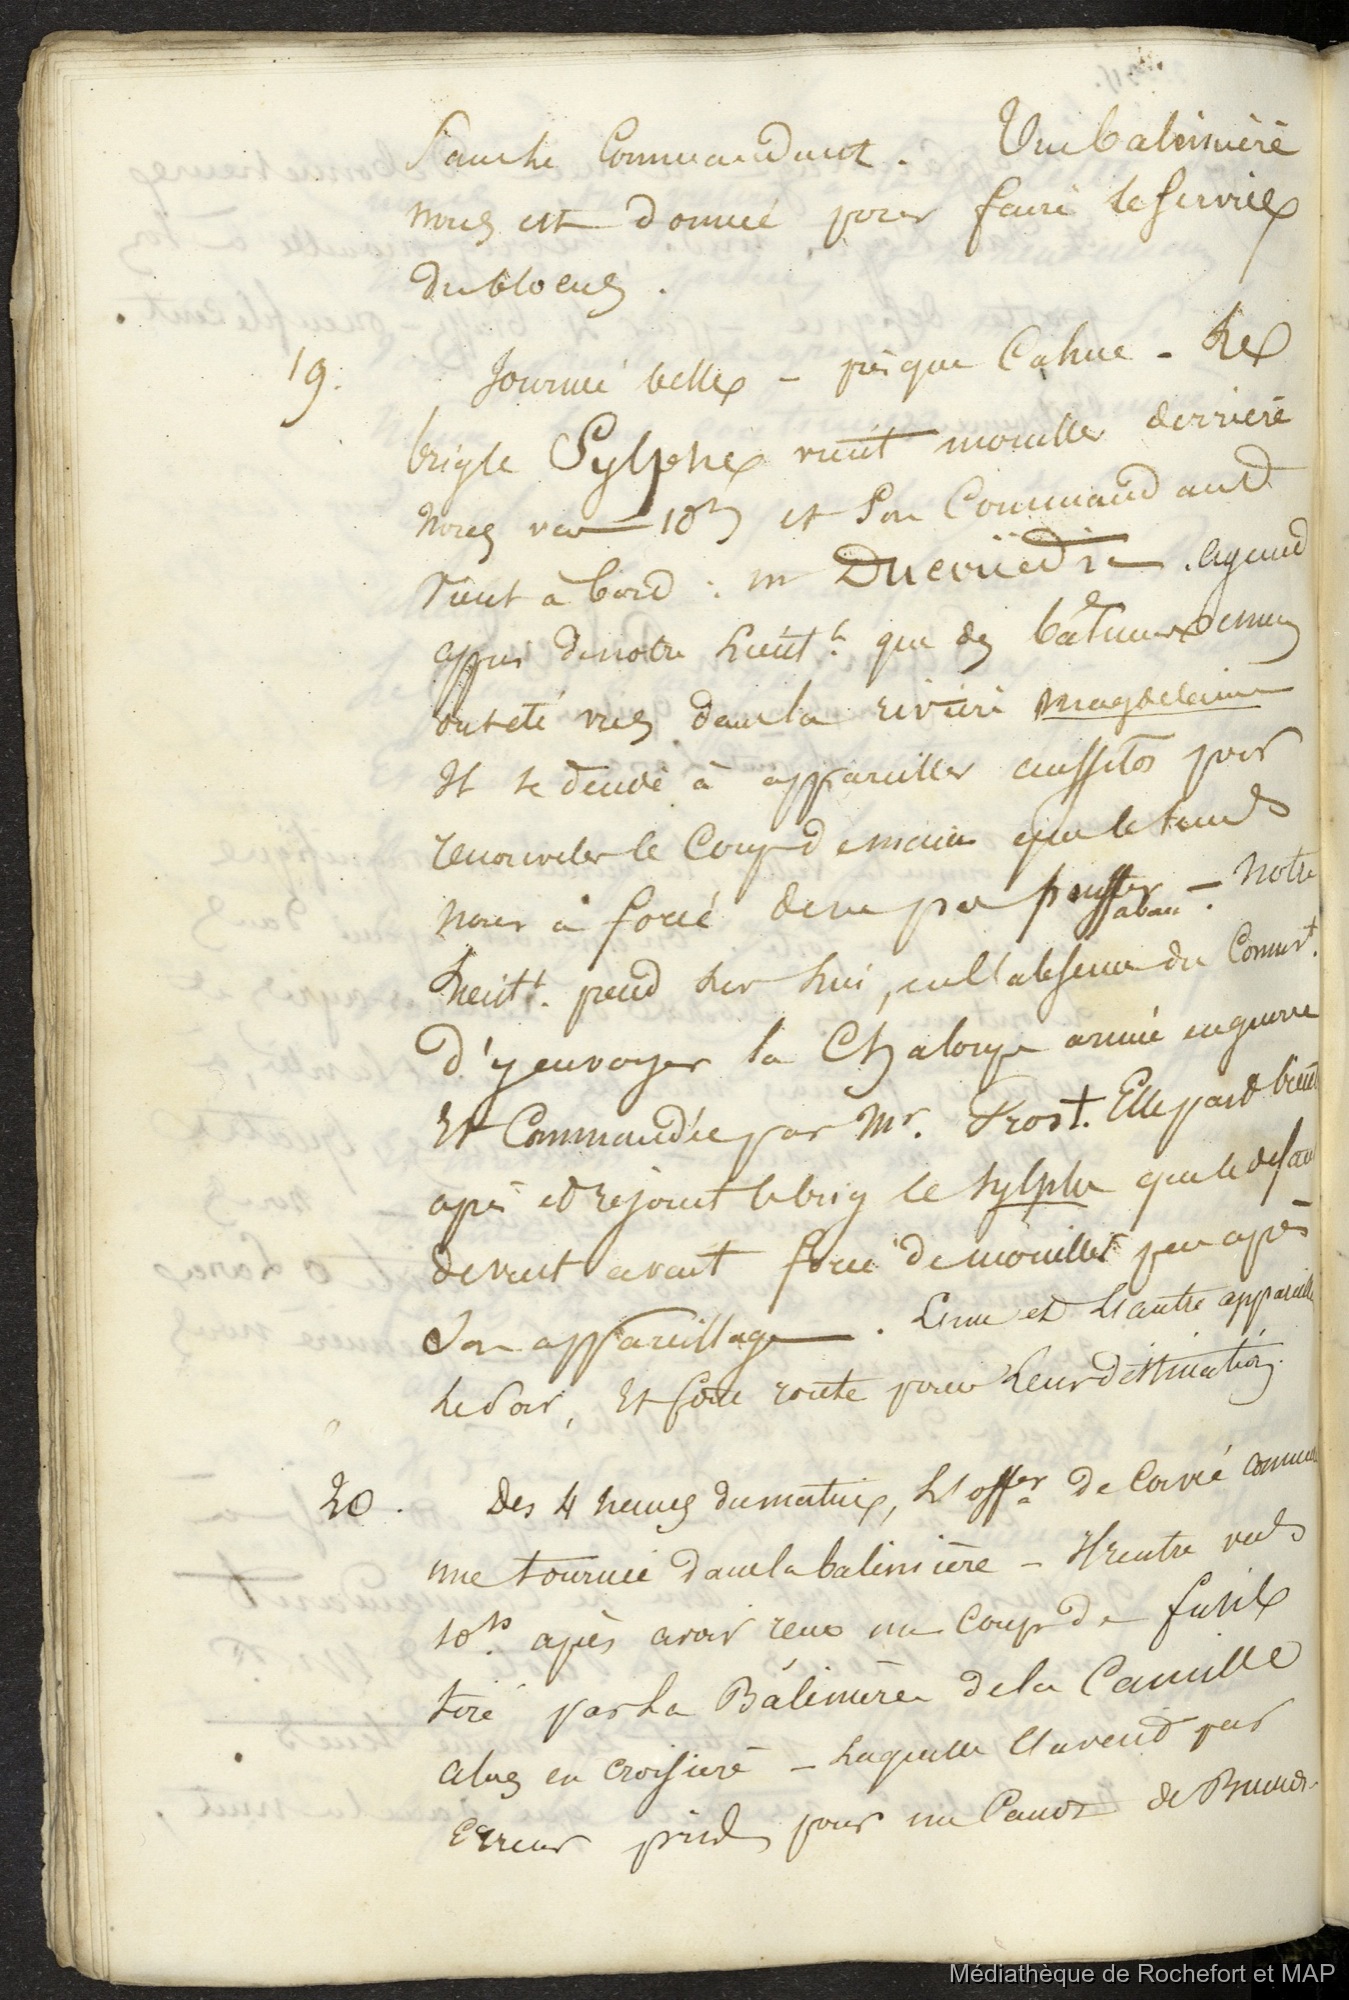 Sauche Commandant. Une balinière
nous est donnée pour faire le service
du blocus.
19. Journée belle – presque Calme – Le
brigk Sylphe vient mouiller derrière
nous vers 10h et son Commandant
vient à bord : mr Ducrüedre. ayant
appris de notre Lieutt. que des bâtiments ennemis
ont été vus dans la rivière Magdelaine
Il se décide à appareiller aussitôt pour
renouveler le Coup de main que le tems
nous a forcé de ne pas pousser à bout – Notre
Lieutt. prend sur lui, en l'absence du Commt.
d'y envoyer la Chaloupe armée en guerre
Et Commandée par Mr. Trost. Elle part bientôt
après et rejoint le brig le Sylphe que le défaut
de vent avait forcé de mouiller peu après
son appareillage. L'un et L'autre appareille
le Soir, Et font route pour Leur destination.
20. Dès 4 heures du matin, L'offer de Corvé commence
une tournée dans la balinière – Il rentre vers
10h. après avoir reçu un Coup de fusil
tiré par la Balinière de la Camille
alors en croisière – Laquelle l'avait par
Erreur pris pour un Canot de Buenos-
Médiathèque de Rochefort et MAP